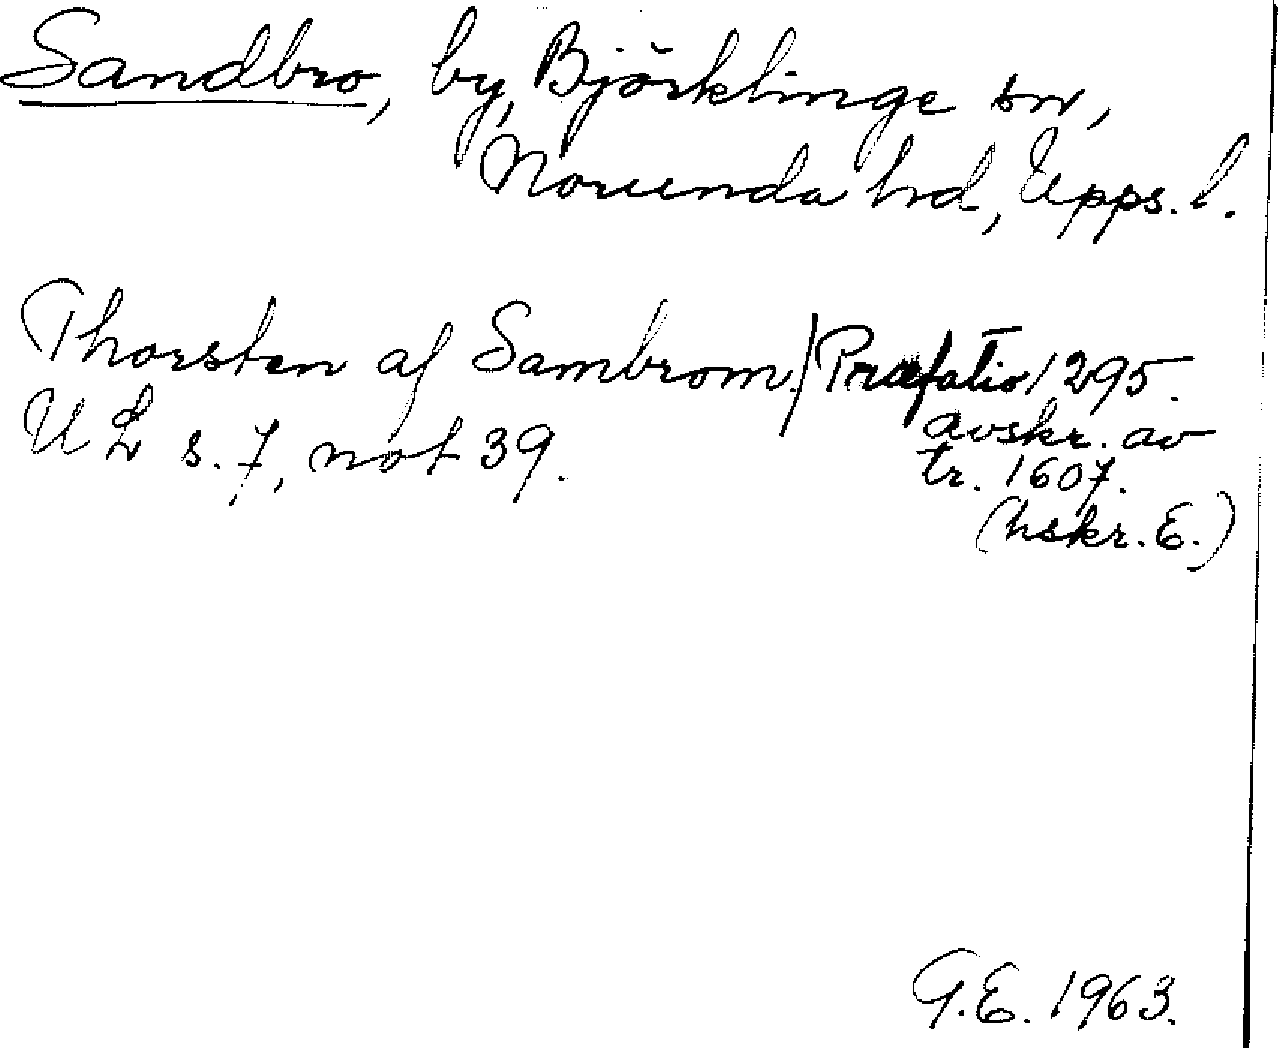 Sandbro, by, Björklinge sn,
Norunda hd, Upps. l.
Thorsten af Sambrom./Præfatio 1295.
UL s. 7, not 39.
avskr. av
tr. 1607.
(hskr. E.)
G.E. 1963.